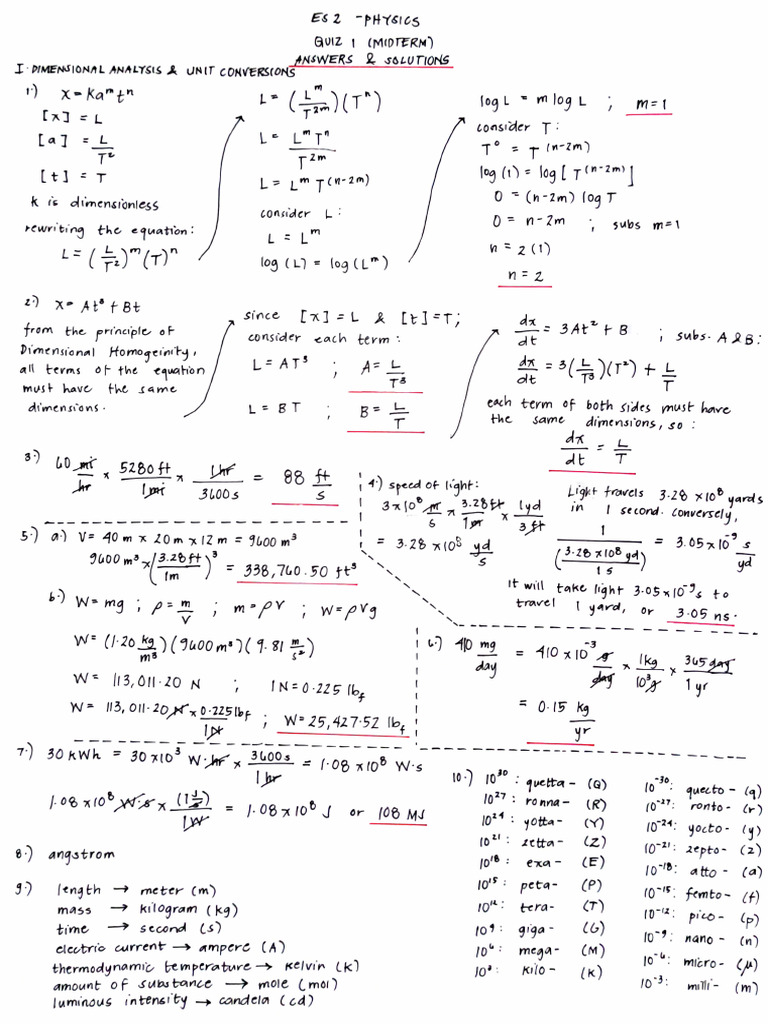 ES 2 - PHYSICS
QUIZ 1 (MIDTERM)
ANSWERS & SOLUTIONS
I. DIMENSIONAL ANALYSIS & UNIT CONVERSIONS
1.) x = Ka^m t^n
[x] = L
[a] = L/T²
[t] = T
k is dimensionless
rewriting the equation:
L = (L/T²)^m (T)^n
L = (L^m/T^2m)(T^n)
L = L^m T^n/T^2m
L = L^m T^(n-2m)
consider L:
L = L^m
log(L) = log(L^m)
log L = m log L ; m=1
consider T:
T⁰ = T^(n-2m)
log(1) = log[T^(n-2m)]
0 = (n-2m) log T
0 = n-2m ; subs m=1
n = 2(1)
n = 2
2.) x = At³ + Bt
from the principle of
Dimensional Homogeinity,
all terms of the equation
must have the same
dimensions.
since [x] = L & [t] = T;
consider each term:
L = AT³ ; A = L/T³
L = BT ; B = L/T
dx/dt = 3At² + B ; subs. A & B:
dx/dt = 3(L/T³)(T²) + L/T
each term of both sides must have
the same dimensions, so:
dx/dt = L/T
3.) 60 mi/hr × 5280 ft/1 mi × 1 hr/3600 s = 88 ft/s
4.) speed of light:
3×10⁸ m/s × 3.28 ft/1 m × 1 yd/3 ft
= 3.28 × 10⁸ yd/s
Light travels 3.28 × 10⁸ yards
in 1 second. conversely,
1/(3.28 × 10⁸ yd/1 s) = 3.05 × 10⁻⁹ s/yd
It will take light 3.05 × 10⁻⁹ s to
travel 1 yard, or 3.05 ns.
5.) a.) V = 40 m × 20 m × 12 m = 9600 m³
9600 m³ × (3.28 ft/1 m)³ = 338,760.50 ft³
b.) W = mg ; ρ = m/V ; m = ρV ; W = ρVg
W = (1.20 kg/m³)(9600 m³)(9.81 m/s²)
W = 113,011.20 N ; 1 N = 0.225 lb_f
W = 113,011.20 N × 0.225 lbf/1 N ; W = 25,427.52 lb_f
6.) 410 mg/day = 410 × 10⁻³ g/day × 1 kg/10³ g × 365 day/1 yr
= 0.15 kg/yr
7.) 30 kWh = 30 × 10³ W·hr × 3600 s/1 hr = 1.08 × 10⁸ W·s
1.08 × 10⁸ W·s × (1 J/s)/1 W = 1.08 × 10⁸ J or 108 MJ
8.) angstrom
9.) length → meter (m)
mass → kilogram (kg)
time → second (s)
electric current → ampere (A)
thermodynamic temperature → kelvin (K)
amount of substance → mole (mol)
luminous intensity → candela (cd)
10.) 10³⁰ : quetta- (Q)
10²⁷ : ronna- (R)
10²⁴ : yotta- (Y)
10²¹ : zetta- (Z)
10¹⁸ : exa- (E)
10¹⁵ : peta- (P)
10¹² : tera- (T)
10⁹ : giga- (G)
10⁶ : mega- (M)
10³ : kilo- (k)
10⁻³⁰ : quecto- (q)
10⁻²⁷ : ronto- (r)
10⁻²⁴ : yocto- (y)
10⁻²¹ : zepto- (z)
10⁻¹⁸ : atto- (a)
10⁻¹⁵ : femto- (f)
10⁻¹² : pico- (p)
10⁻⁹ : nano- (n)
10⁻⁶ : micro- (μ)
10⁻³ : milli- (m)